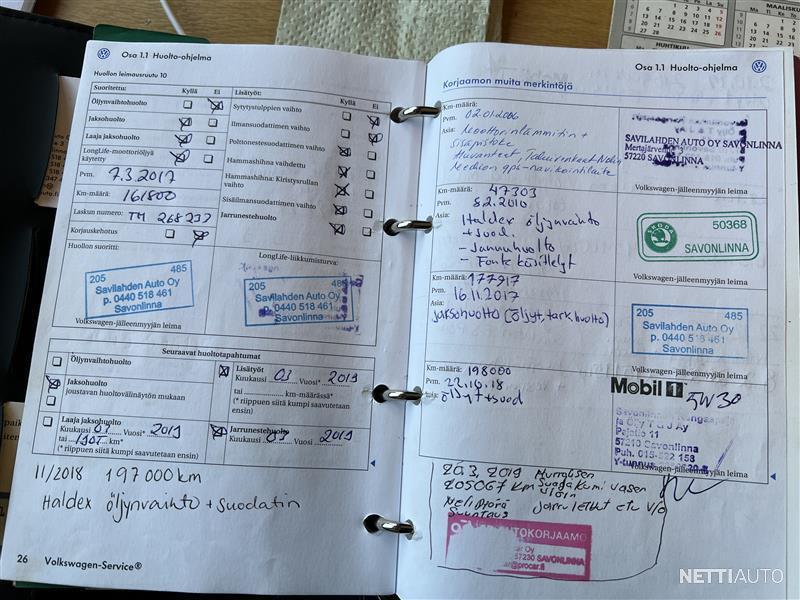 Osa 1.1 Huolto-ohjelma
Huollon leimausruutu 10
Suoritettu:
Kyllä
Ei
Öljynvaihtohuolto
Jaksohuolto
Laaja jaksohuolto
LongLife-moottoriöljyä
käytetty
Pvm. 7.3.2017
Km-määrä: 161800
Laskun numero: TM 268 237
Korjauskehotus
Huollon suoritti:
205 485
Savilahden Auto Oy
p. 0440 518 461
Savonlinna
Volkswagen-jälleenmyyjän leima
Lisätyöt:
Kyllä
Ei
Sytytystulppien vaihto
Ilmansuodattimen vaihto
Polttonestesuodattimen vaihto
Hammashihna vaihdettu
Hammashihna: Kiristysrullan
vaihto
Sisäilmansuodattimen vaihto
Jarrunestehuolto
LongLife-liikkumisturva:
205 485
Savilahden Auto Oy
p. 0440 518 461
Savonlinna
Volkswagen-jälleenmyyjän leima
Seuraavat huoltotapahtumat
Öljynvaihtohuolto
Jaksohuolto
joustavan huoltovälinäytön mukaan
Laaja jaksohuolto
Kuukausi 01 Vuosi* 2019
tai 190T km*
(* riippuen siitä kumpi saavutetaan ensin)
Lisätyöt
Kuukausi 03 Vuosi* 2019
tai km-määrässä*
(* riippuen siitä kumpi saavutetaan
ensin)
Jarrunestehuolto
Kuukausi 03 Vuosi 2019
11/2018 197 000 km
Haldex öljynvaihto + suodatin
26 Volkswagen-Service®
Osa 1.1 Huolto-ohjelma
Korjaamon muita merkintöjä
Km-määrä:
Pvm. 02.01.2006
Asia: Moottorinlämmitin +
sisäpistoke
SAVILAHDEN AUTO OY SAVONLINNA
57220 SAVONLINNA
Volkswagen-jälleenmyyjän leima
Km-määrä: 47303
Pvm. 8.2.2010
Asia: Haldex öljynvaihto
+ suod.
SKODA
50368
SAVONLINNA
Volkswagen-jälleenmyyjän leima
Km-määrä: 177917
Pvm. 16.11.2017
Asia:
jaksohuolto (öljyt, tark, huolto)
205 485
Savilahden Auto Oy
p. 0440 518 461
Savonlinna
Volkswagen-jälleenmyyjän leima
Km-määrä: 198000
Pvm. 22.10.18
Asia: öljyt+suod
Mobil 1 5W30
Pajatie 11
57210 Savonlinna
Puh. 015-522 158
Volkswagen-jälleenmyyjän leima
20.3.2019
205067 km
Suojakumi vasen
Nelipyörä
Suuntaus
jarruletkut etu v/o
AUTOKORJAAMO
57230 SAVONLINNA
NETTIAUTO